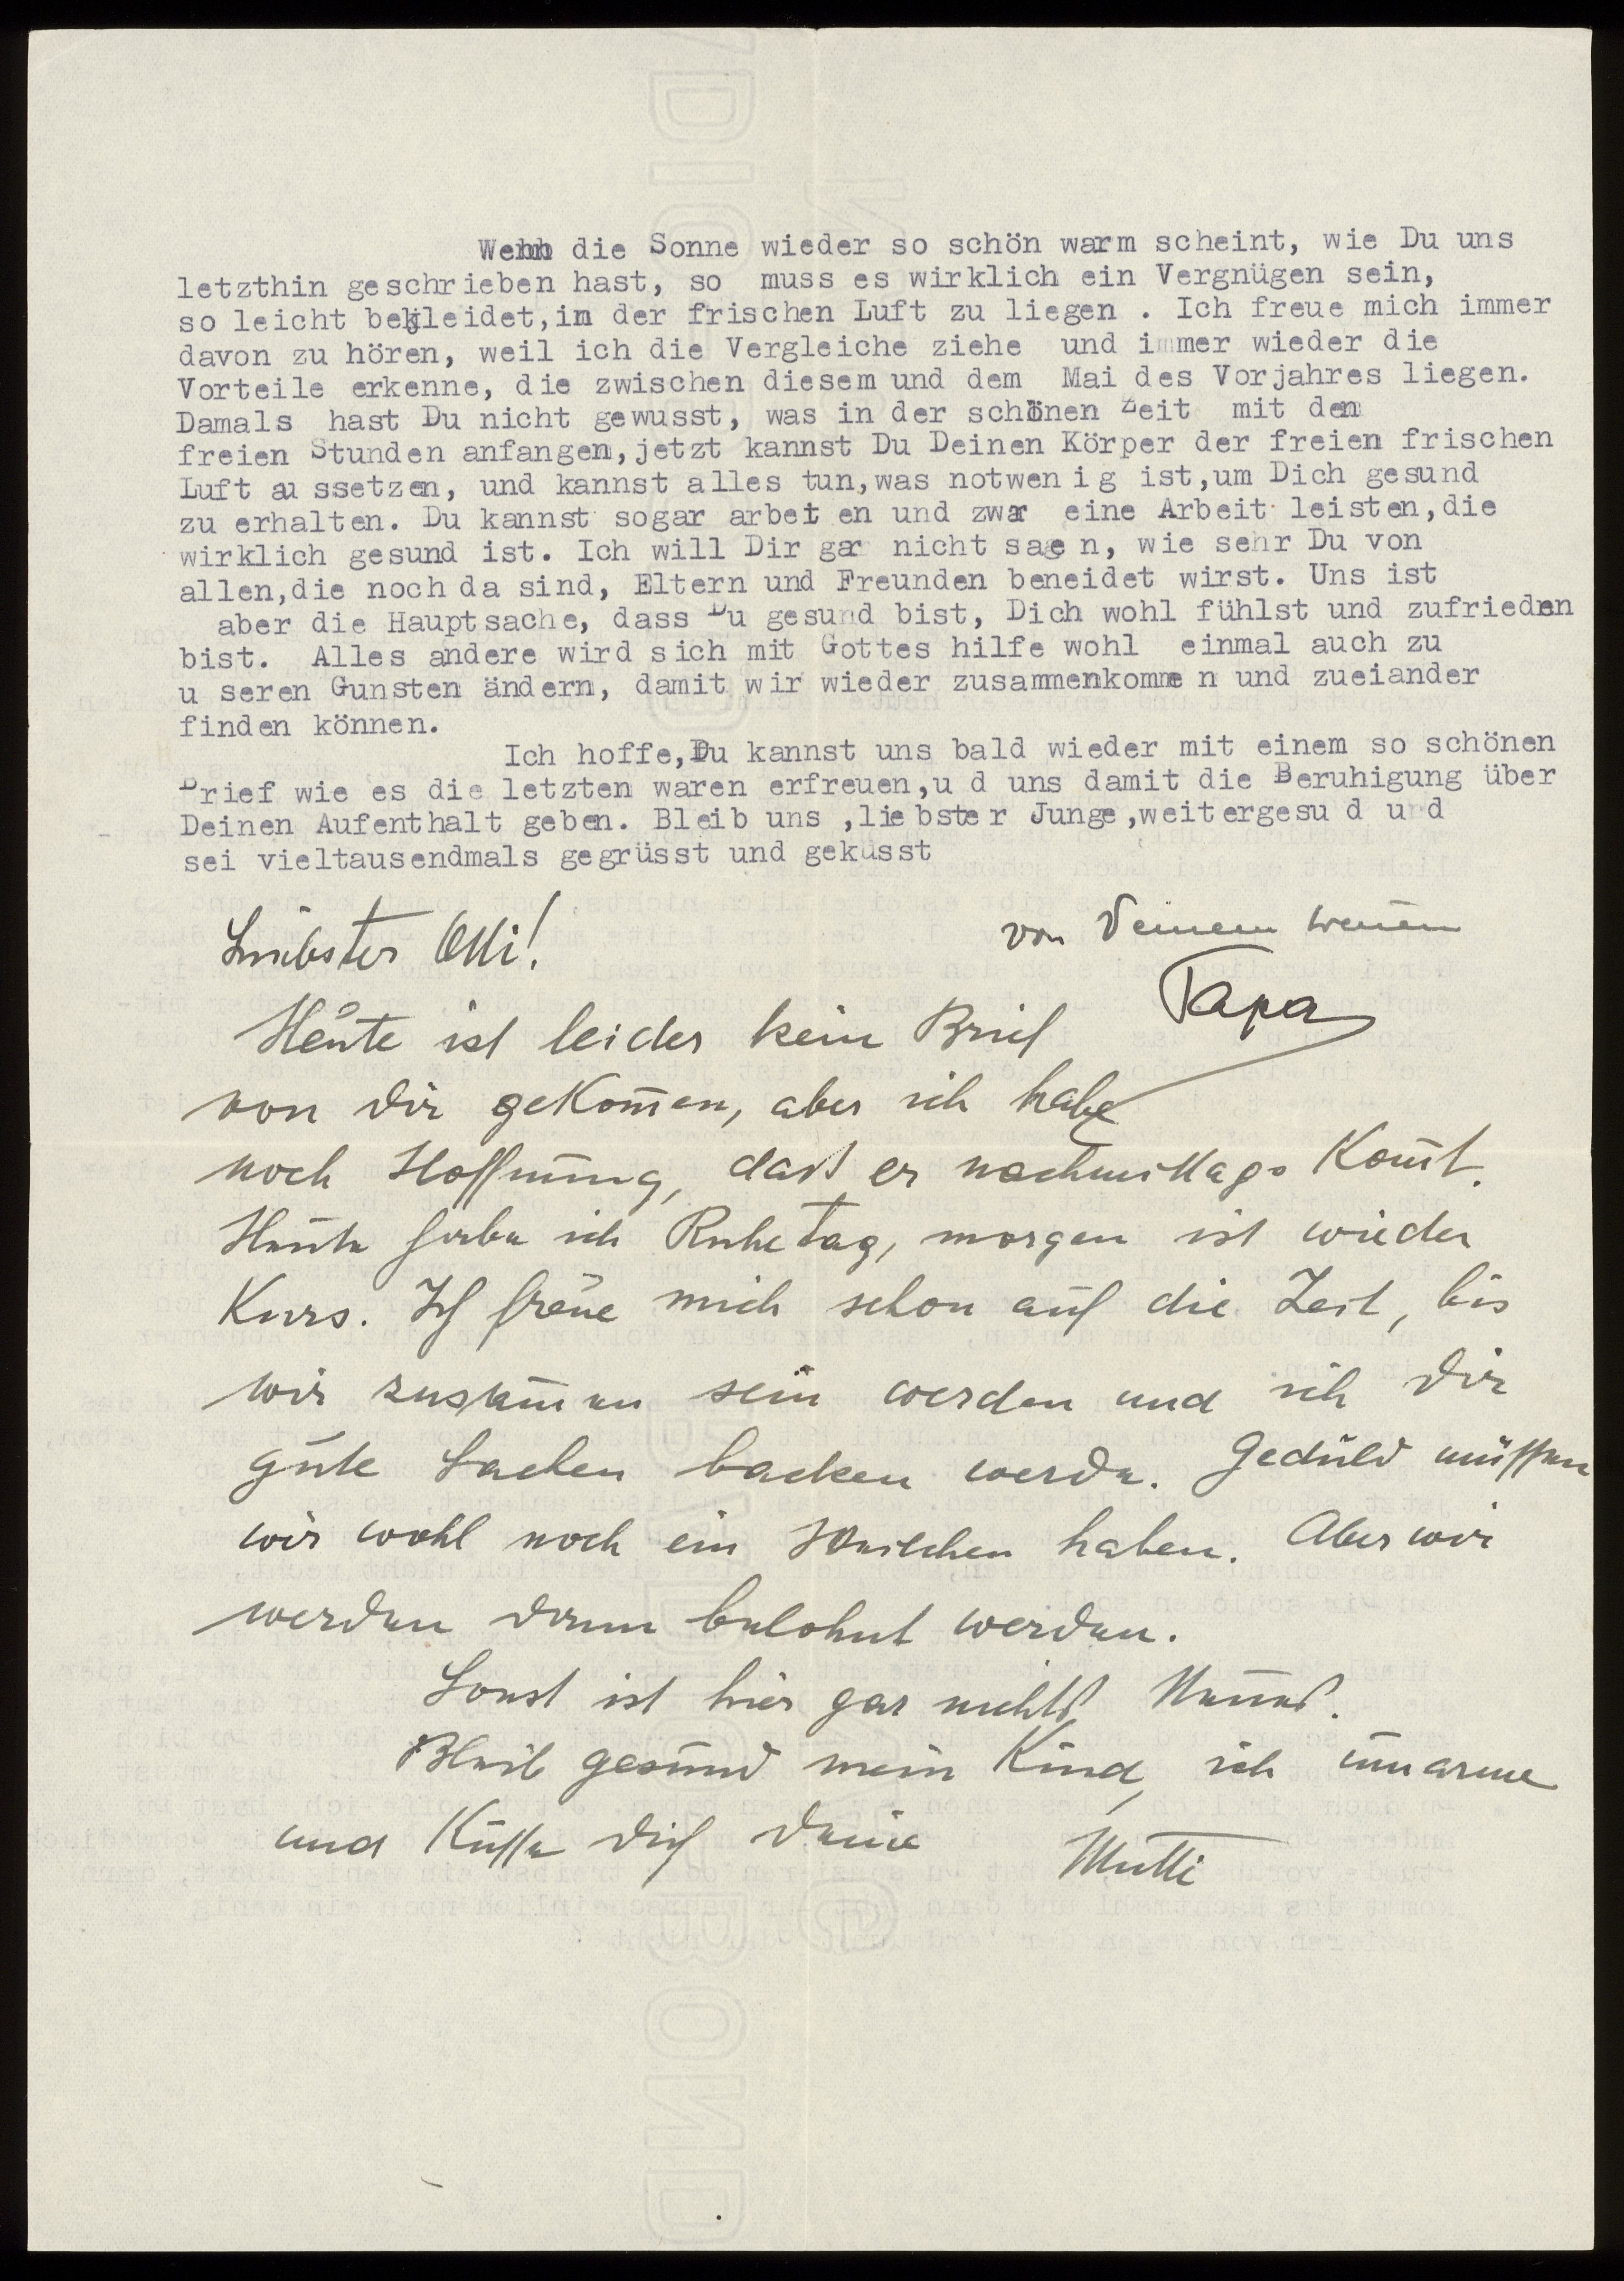 Wenn die Sonne wieder so schön warm scheint, wie Du uns
letzthin geschrieben hast, so muss es wirklich ein Vergnügen sein,
so leicht bekleidet,in der frischen Luft zu liegen . Ich freue mich immer
davon zu hören, weil ich die Vergleiche ziehe und immer wieder die
Vorteile erkenne, die zwischen diesem und dem Mai des Vorjahres liegen.
Damals hast Du nicht gewusst, was in der schönen Zeit mit den
freien Stunden anfangen,jetzt kannst Du Deinen Körper der freien frischen
Luft au ssetzen, und kannst alles tun,was notwen i g ist,um Dich gesund
zu erhalten. Du kannst sogar arbeit en und zwar eine Arbeit leisten,die
wirklich gesund ist. Ich will Dir gar nicht sage n, wie sehr Du von
allen,die noch da sind, Eltern und Freunden beneidet wirst. Uns ist
aber die Hauptsache, dass Du gesund bist, Dich wohl fühlst und zufrieden
bist. Alles andere wird sich mit Gottes hilfe wohl einmal auch zu
u seren Gunsten ändern, damit wir wieder zusammenkomme n und zueiander
finden können.
Ich hoffe,Du kannst uns bald wieder mit einem so schönen
Brief wie es die letzten waren erfreuen,u d uns damit die Beruhigung über
Deinen Aufenthalt geben. Bleib uns ,liebster Junge,weitergesu d und
sei vieltausendmals gegrüsst und geküsst
von Deinem
Papa
Liebster Otti!
Heute ist leider kein Brief
von Dir gekom̅en, aber ich habe
noch Hoffnung, dass er nachmittags kom̅t.
Heute habe ich Ruhetag, morgen ist wieder
Kurs. Ich freue mich schon auf die Zeit, bis
wir zusam̅en sein werden und ich Dir
gute Sachen backen werde. Geduld müssen
wir wohl noch ein Weilchen haben. Aber wir
werden dann belohnt werden.
Sonst ist hier gar nichts Neues.
Bleib gesund mein Kind, ich umarme
und küsse Dich Deine
Mutti